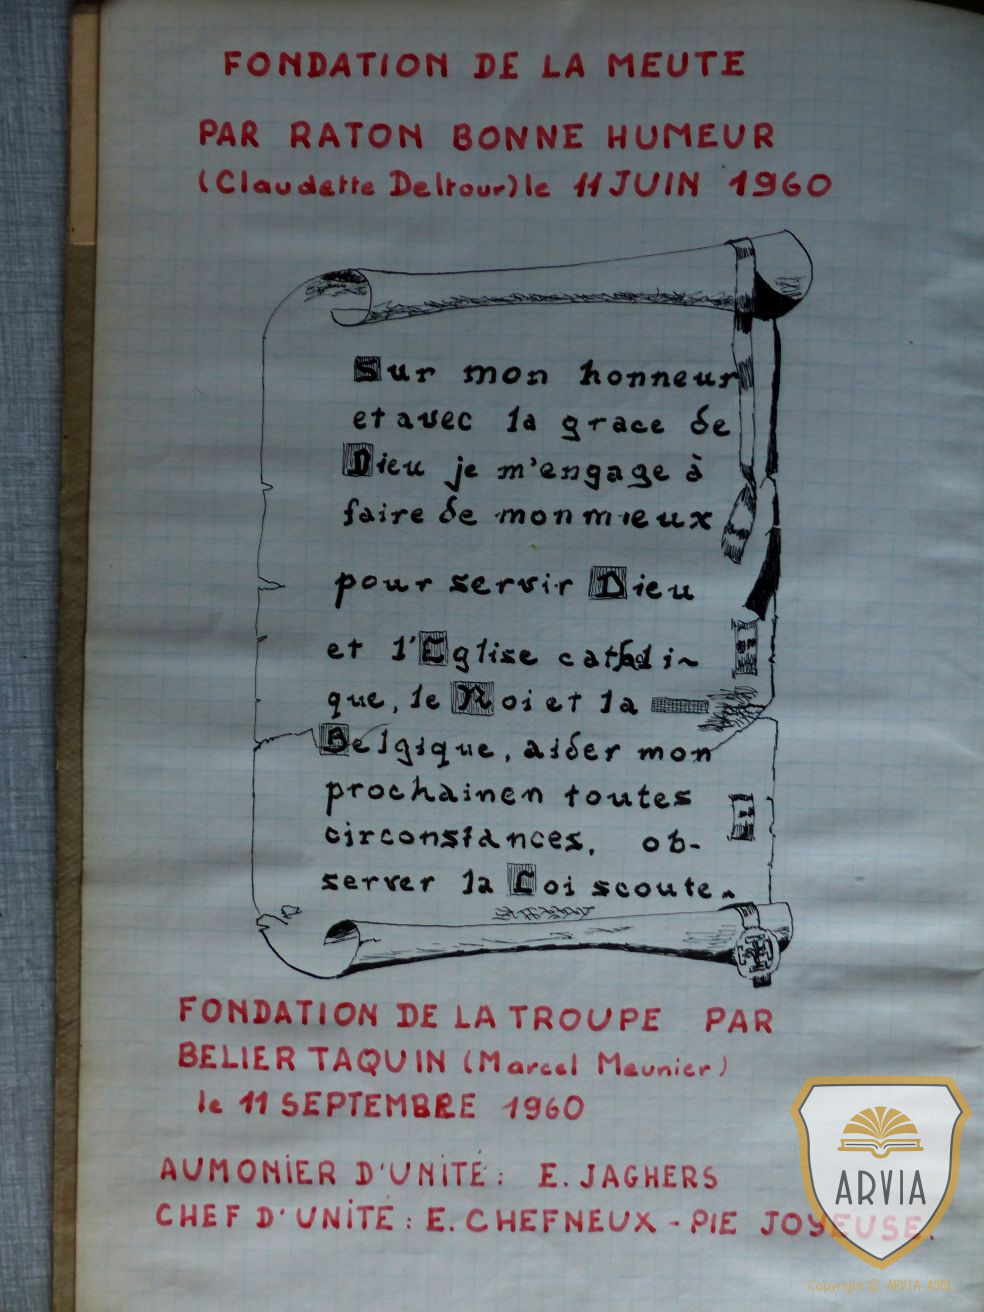 FONDATION DE LA MEUTE
PAR RATON BONNE HUMEUR
(Claudette Deltour) le 11 JUIN 1960
Sur mon honneur
et avec la grace de
Dieu je m'engage à
faire de mon mieux
pour servir Dieu
et l'Eglise catholi~
que, le Roi et la
Belgique, aider mon
prochain en toutes
circonstances, ob-
server la Loi scoute.
FONDATION DE LA TROUPE PAR
BELIER TAQUIN (Marcel Meunier)
le 11 SEPTEMBRE 1960
AUMONIER D'UNITÉ : E. JAGHERS
CHEF D'UNITÉ : E. CHEFNEUX - PIE JOYEUSE.
ARVIA
Copyright © ARVIA ASBL